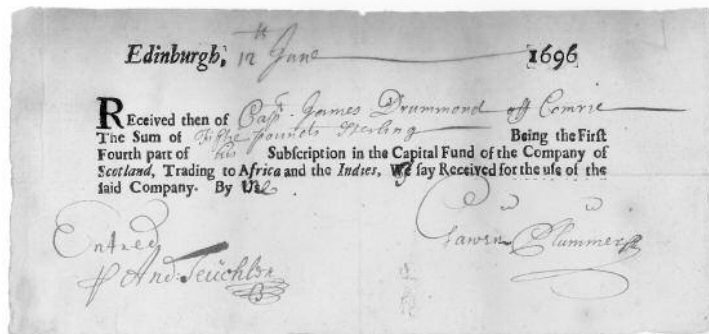 Edinburgh, 12th June 1696
REceived then of Capt. James Drummond off Comrie
The Sum of fiftie pounds sterling Being the First
Fourth part of his Subscription in the Capital Fund of the Company of
Scotland, Trading to Africa and the Indies, We say Received for the use of the
said Company. By Us
Entred
And: Teuchler
Plummer